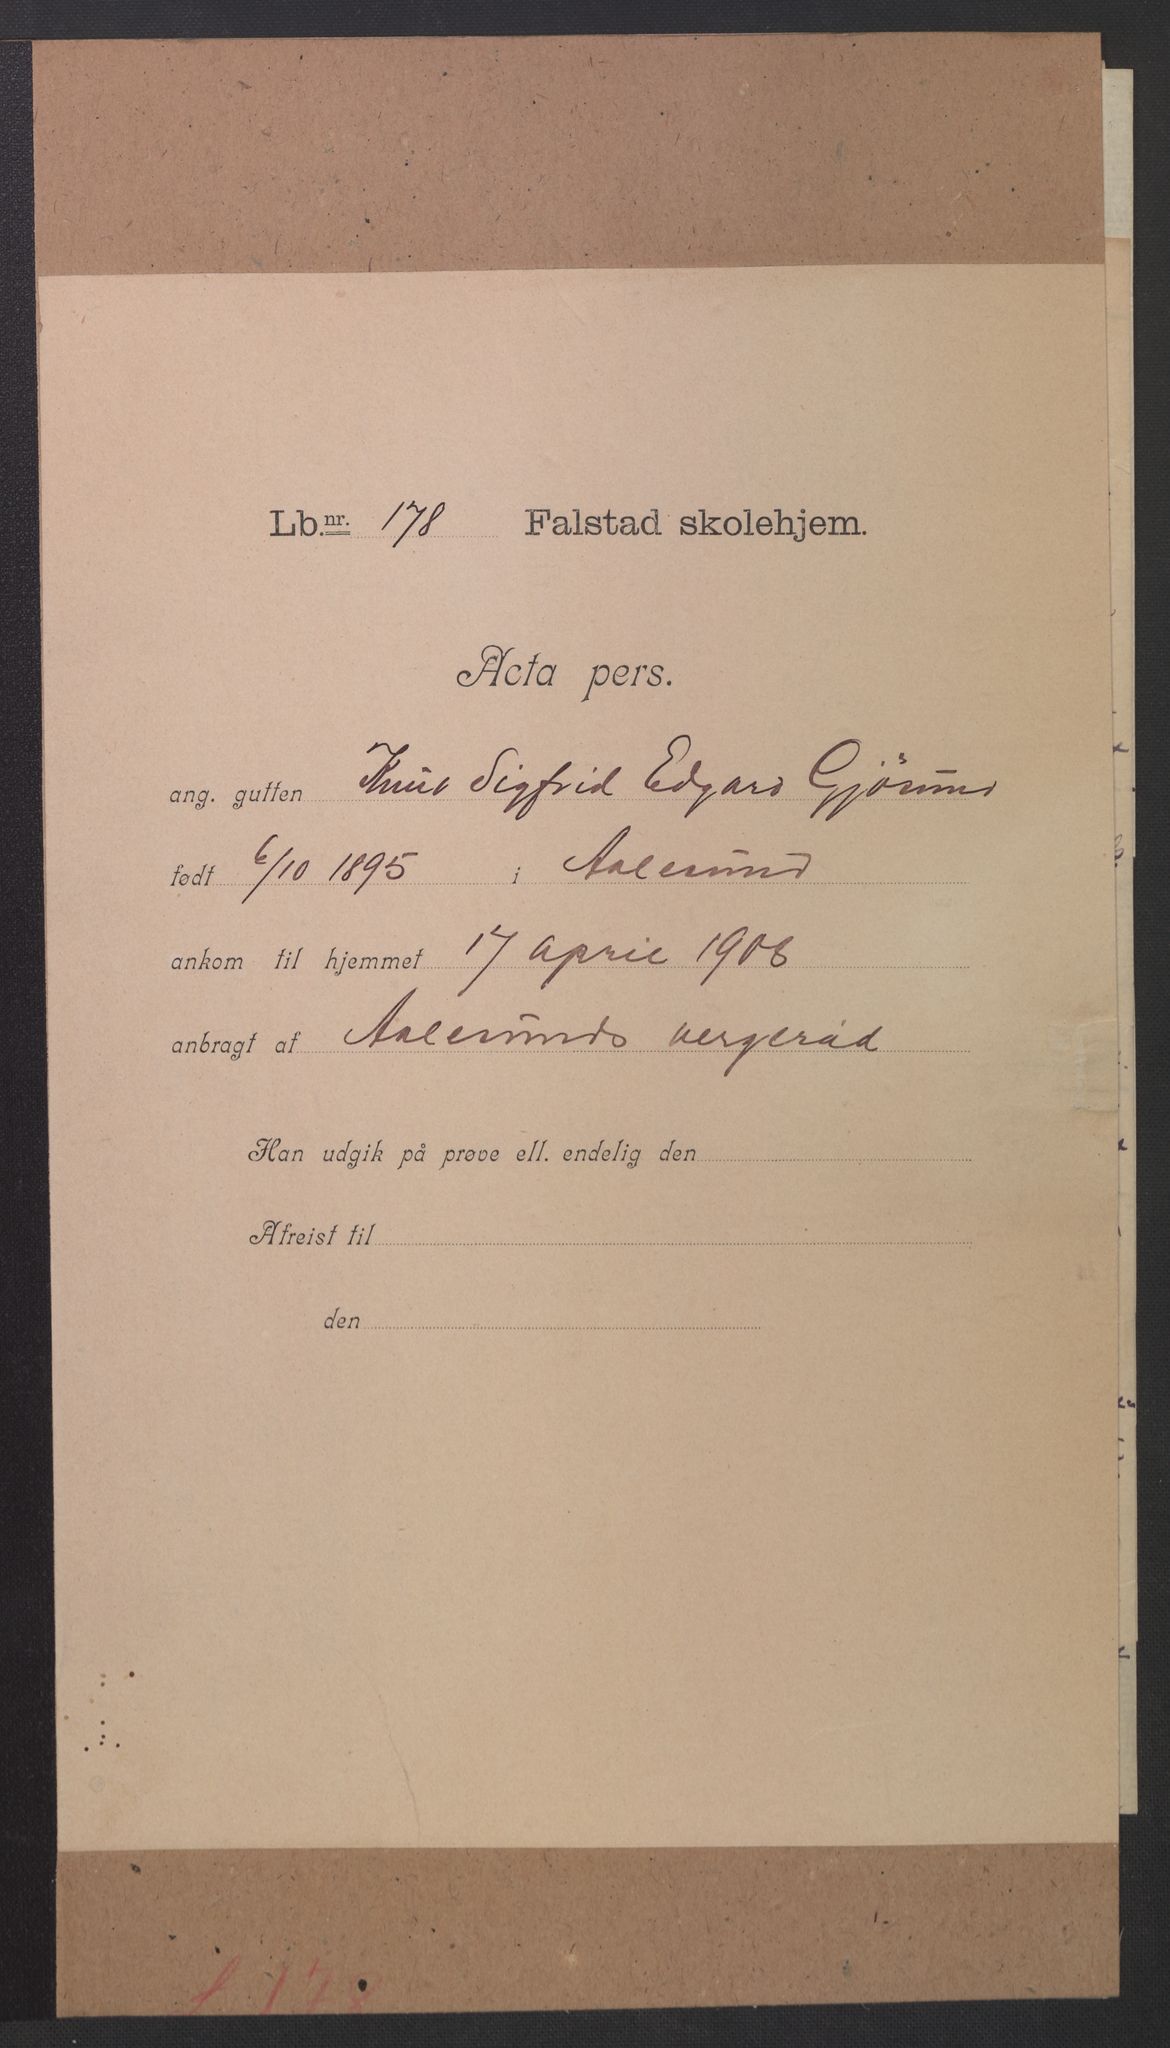 Lb.nr. 178 Falstad skolehjem.
Acta pers.
ang. gutten Knut Sigfrid Edgard Gjörund
født 6/10 1895 i Aalesund
ankom til hjemmet 17 april 1908
anbragt af Aalesunds vergeråd
Han udgik på prøve ell. endelig den
Afreist til
den